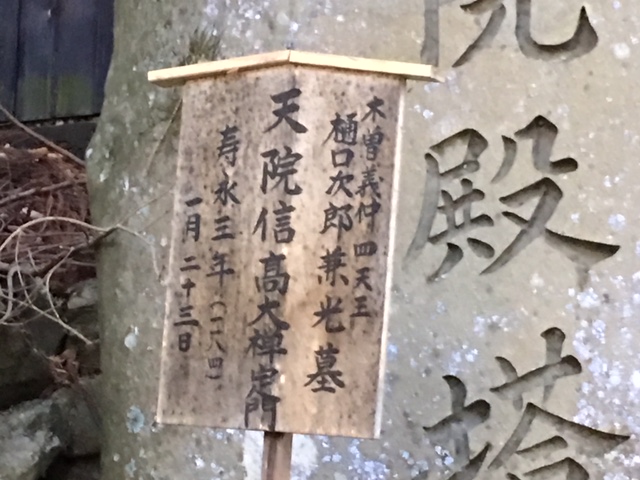 木曽義仲四天王
樋口次郎兼光墓
天院信高大禅定門
寿永三年(一一八四)
一月二十三日
院殿塔